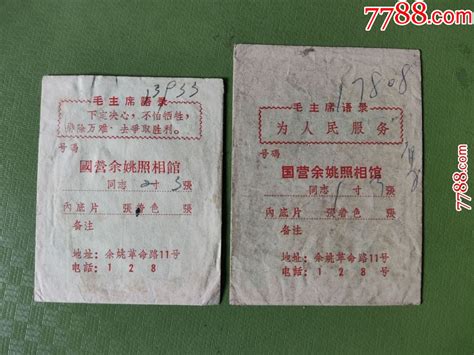 7788.com
13933
毛主席语录
下定决心,不怕牺牲,
排除万难,去争取胜利。
号码
國营余姚照相館
同志 2 寸 3 張
內底片 張着色 張
备注
地址:余姚革命路11号
电話:128
17808
毛主席语录
为人民服务
号碼
国营余姚照相館
同志 1 寸 3 張
內底片 張着色 張
备注
地址:余姚革命路11号
电話:128号
7788.com